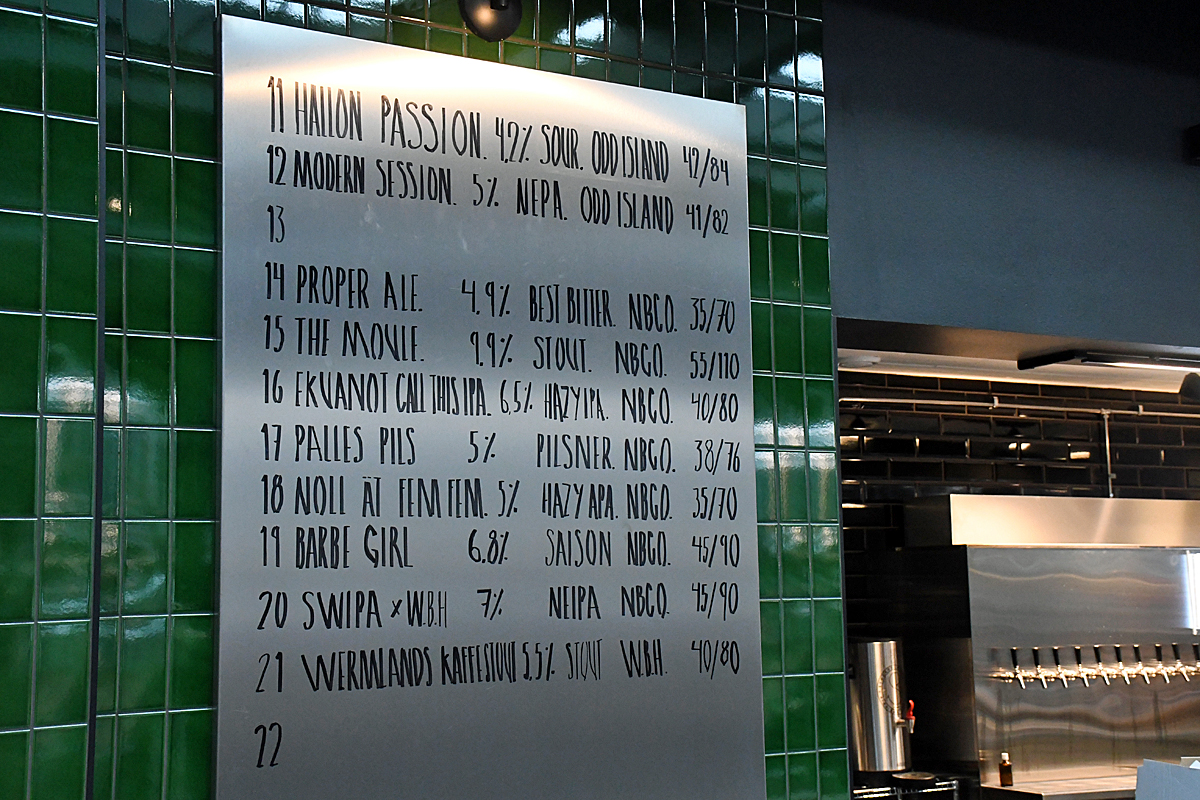 11 HALLON PASSION. 4,2% SOUR. ODD ISLAND 42/84
12 MODERN SESSION. 5% NEPA. ODD ISLAND 41/82
13
14 PROPER ALE. 4.9% BEST BITTER. NBCO. 35/70
15 THE MOVIE. 9.9% STOUT. NBCO. 55/110
16 EKUANOT CALL THIS IPA. 6,5% HAZY IPA. NBCO. 40/80
17 PALLES PILS 5% PILSNER. NBCO. 38/76
18 NOLL ÄT FEM FEM. 5% HAZY APA. NBCO. 35/70
19 BARBE GIRL 6.8% SAISON NBCO. 45/90
20 SWIPA x W.B.H 7% NEIPA NBCO. 45/90
21 WERMLANDS KAFFESTOUT 5,5% STOUT W.B.H. 40/80
22